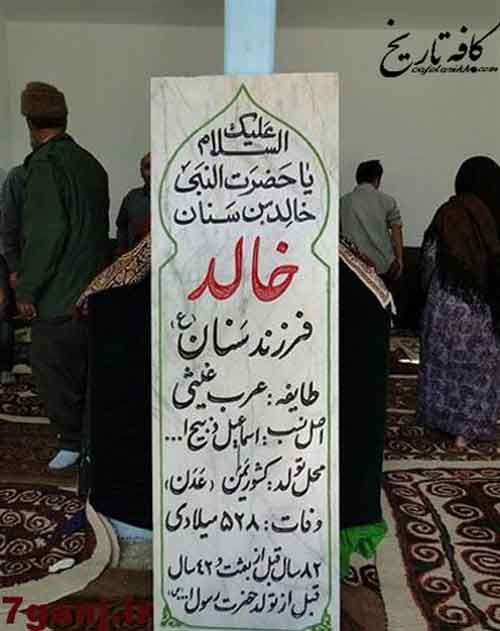 كافه تاريخ
cafetarikh.com
السلام عليك
يا حضرت النبي
خالد بن سنان
خالد
فرزند سنان (ع)
طايفه : عرب غيثي
اصل نسب : اسماعيل ذبيح ا...
محل تولد : كشور يمن (عدن)
وفات : ۵۲۸ ميلادي
۸۲ سال قبل از بعثت و ۴۲ سال
قبل از تولد حضرت رسول ا...
7ganj.ir